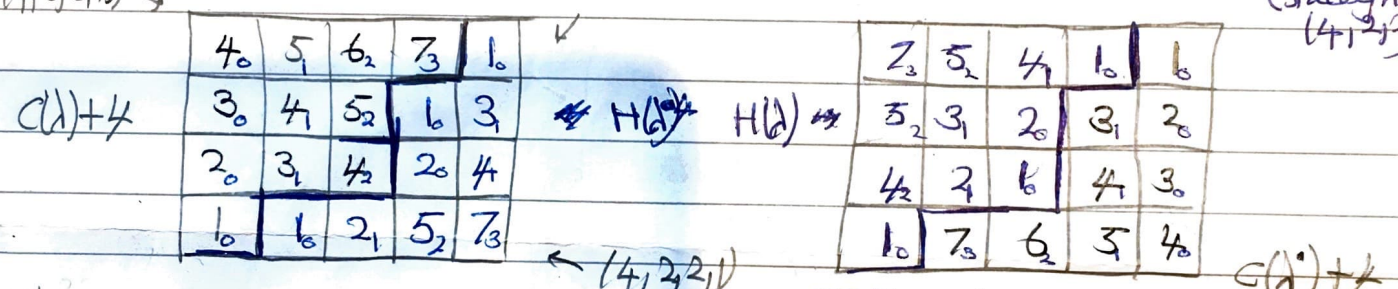 4₀ 5₁ 6₂ 7₃ 1₀
C(λ)+4 3₀ 4₁ 5₂ 1₀ 3₁
2₀ 3₁ 4₂ 2₀ 4₁
1₀ 1₀ 2₁ 5₂ 7₃
← (4,2,2,1)
H(λ) →
7₃ 5₂ 4₁ 1₀ 1₀
5₂ 3₁ 2₀ 3₁ 2₀
4₂ 2₁ 1₀ 4₁ 3₀
1₀ 7₃ 6₂ 5₁ 4₀